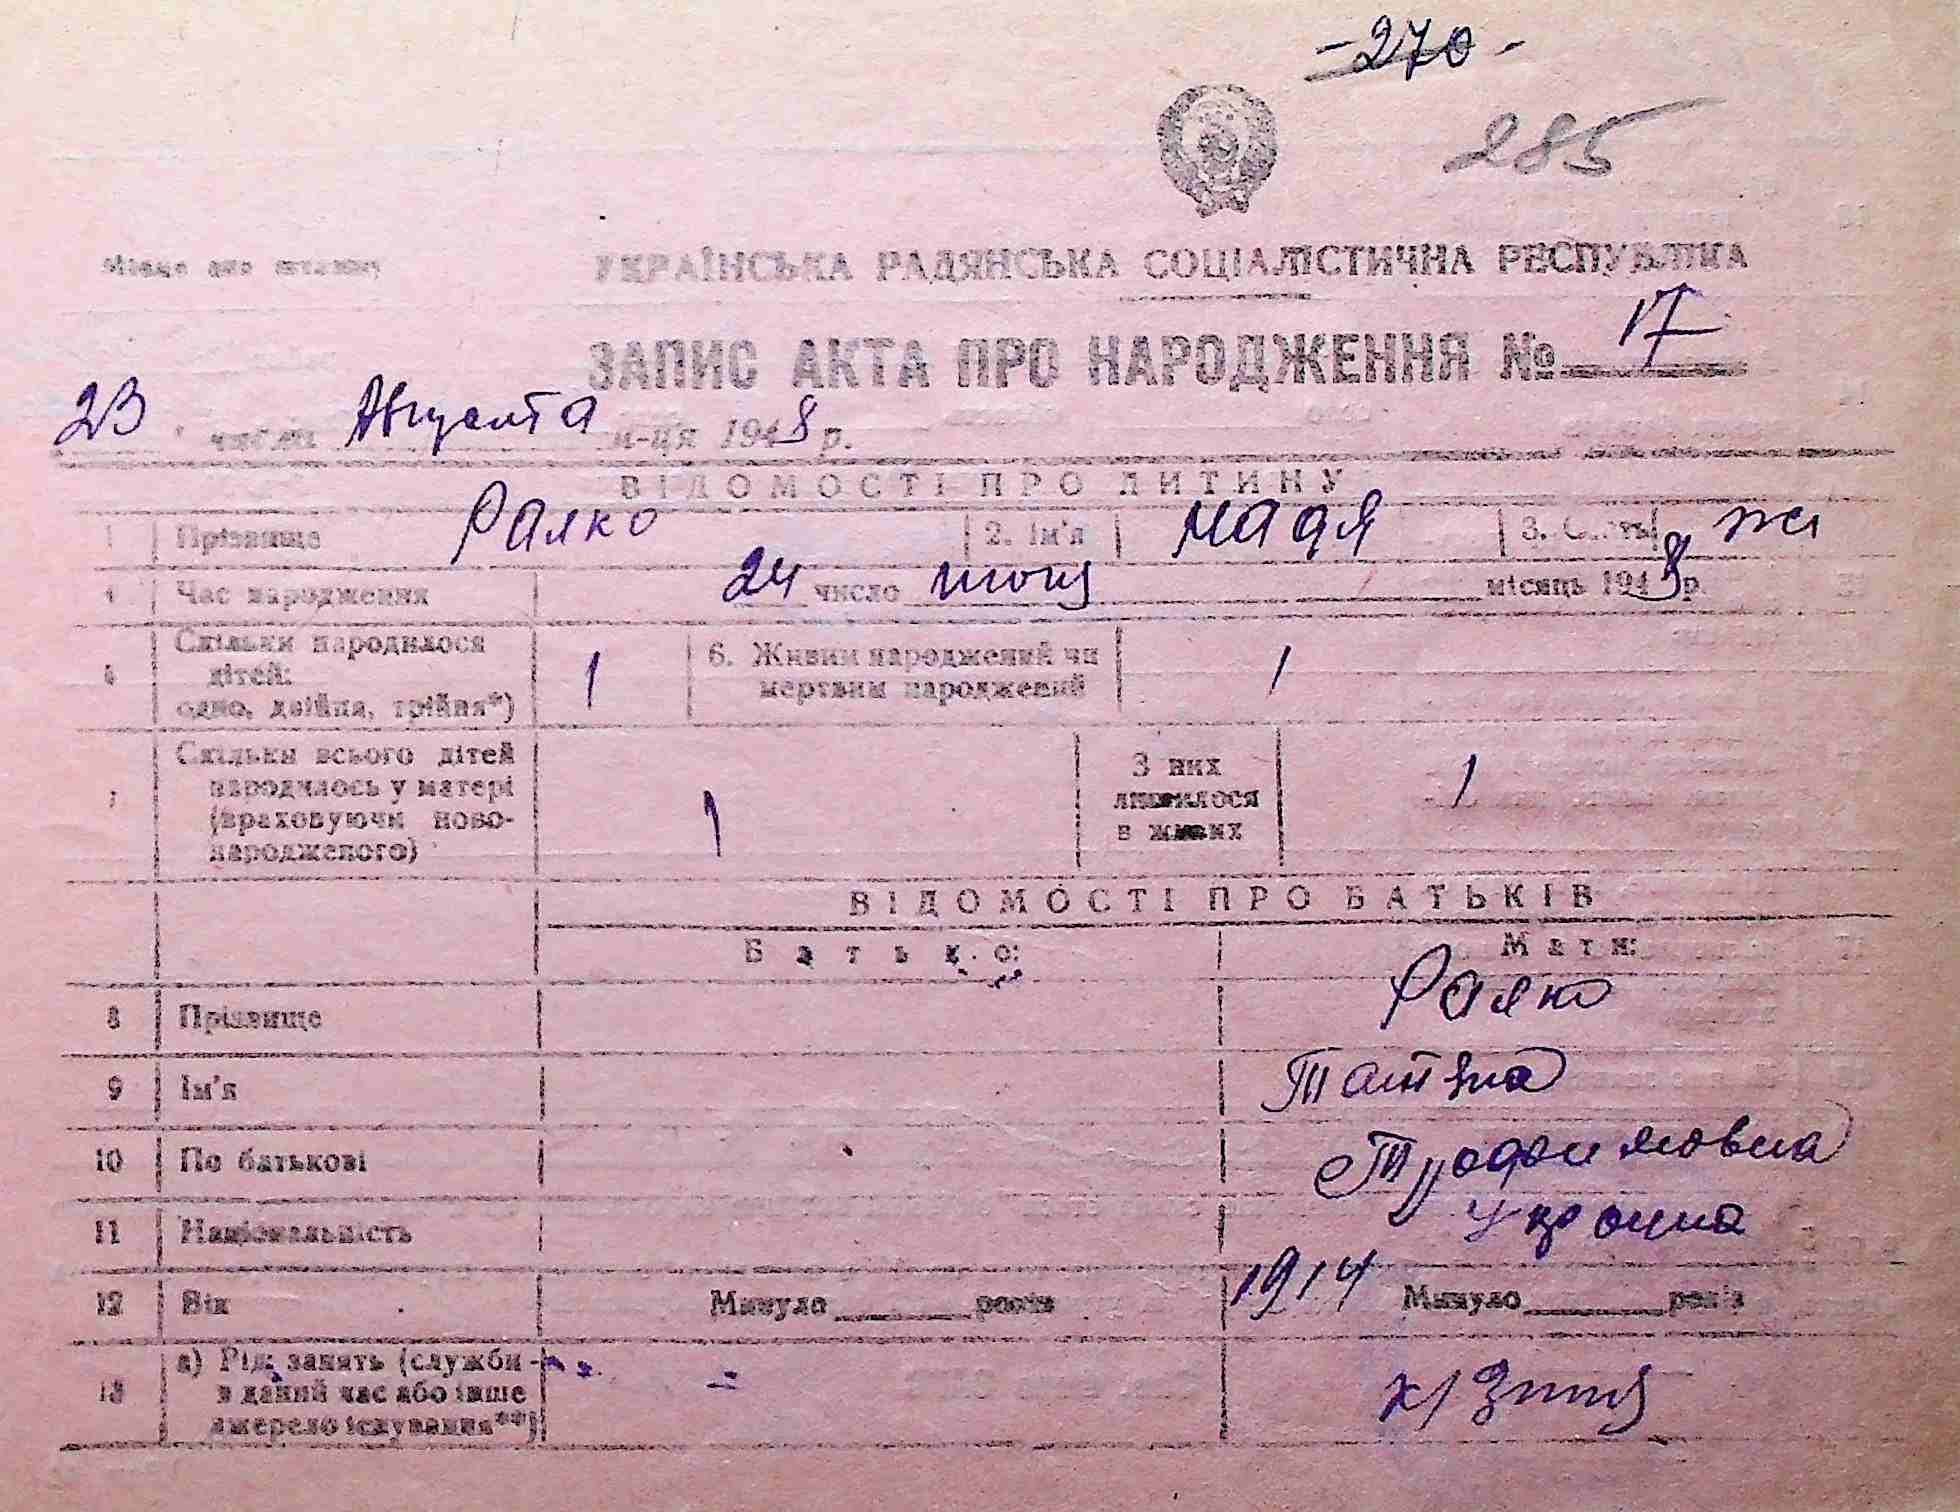 - 270 -
285
Місце для штампу
УКРАЇНСЬКА РАДЯНСЬКА СОЦІАЛІСТИЧНА РЕСПУБЛІКА
ЗАПИС АКТА ПРО НАРОДЖЕННЯ № 17
23 числа Августа м-ця 1948 р.
ВІДОМОСТІ ПРО ДИТИНУ
1 Прізвище Рашко 2. Ім'я Надя 3. Стать ж
4 Час народження 24 число июня місяць 1948 р.
5 Скільки народилося
дітей:
одно, двійня, трійня*) 1
6. Живим народжений чи
мертвим народжений 1
7 Скільки всього дітей
народилось у матері
(враховуючи ново-
народженого) 1
З них
лишилося
в живих 1
ВІДОМОСТІ ПРО БАТЬКІВ
Батько: Мати:
8 Прізвище
9 Ім'я
10 По батькові Трофимовна
11 Національність
12 Вік Минуло ______ років 1914 Минуло ______ років
13 а) Рід занять (служби -
в даний час або інше
джерело існування**)